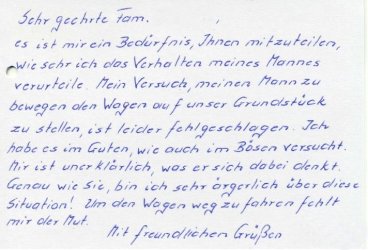 Sehr geehrte Fam.
es ist mir ein Bedürfnis, Ihnen mitzuteilen,
wie sehr ich das Verhalten meines Mannes
verurteile. Mein Versuch, meinen Mann zu
bewegen den Wagen auf unser Grundstück
zu stellen, ist leider fehlgeschlagen. Ich
habe es im Guten, wie auch im Bösen versucht.
Mir ist unerklärlich, was er sich dabei denkt.
Genau wie Sie, bin ich sehr ärgerlich über diese
Situation! Um den Wagen weg zu fahren fehlt
mir der Mut.
Mit freundlichen Grüßen